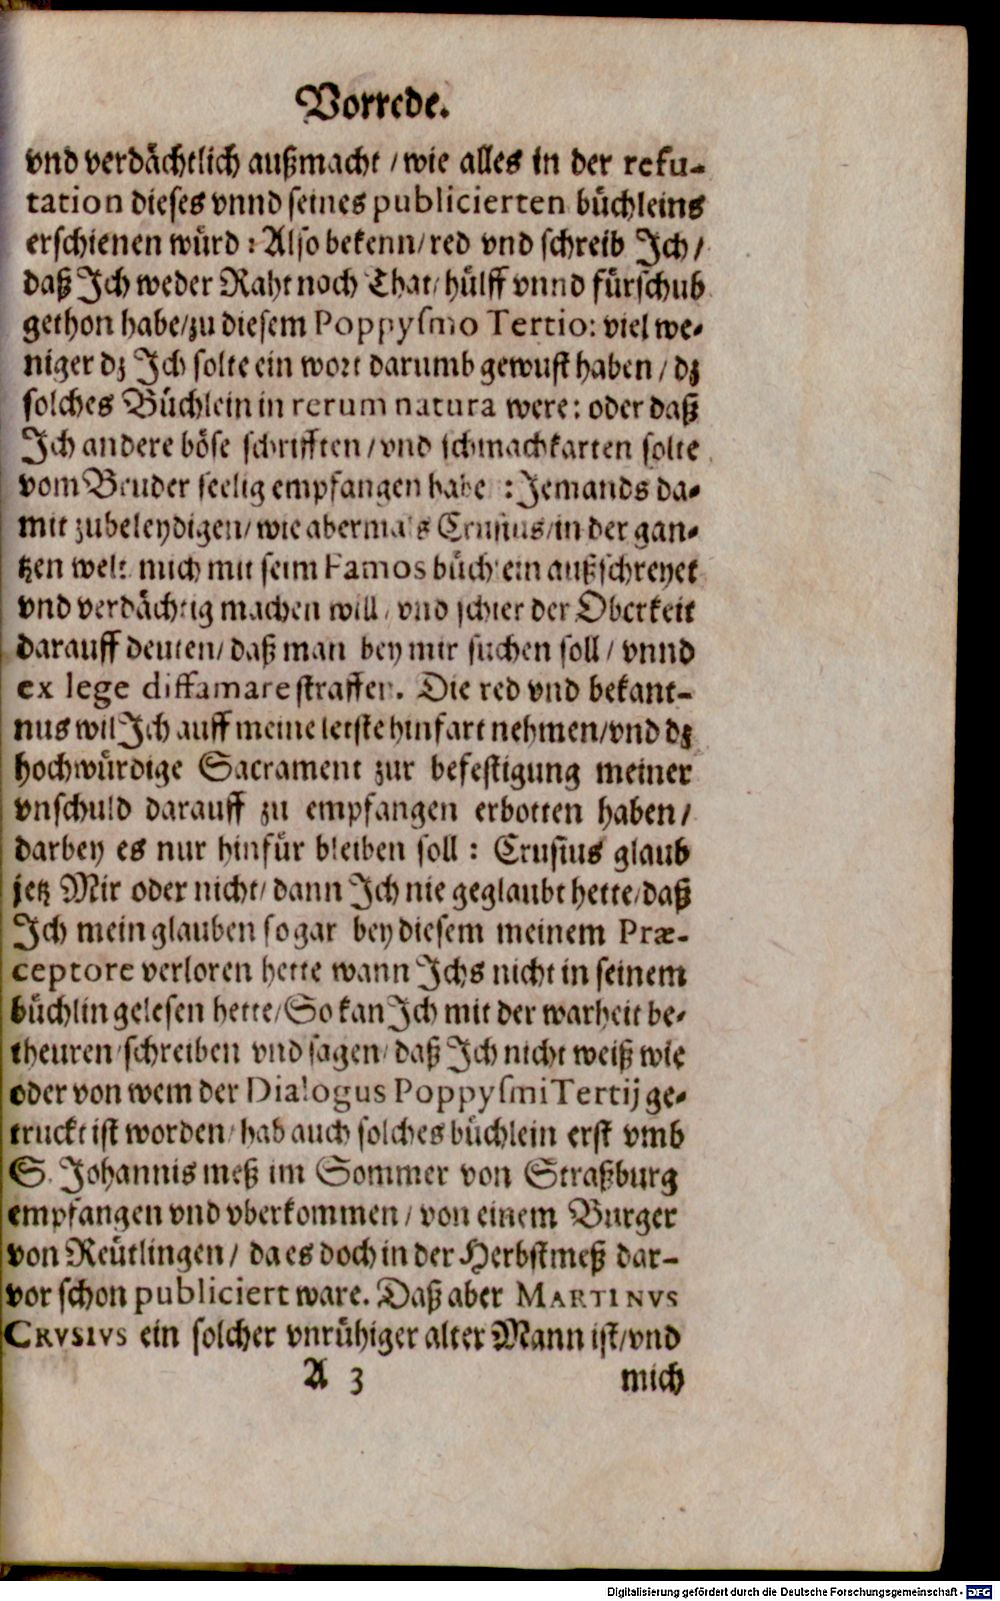 Vorrede.
vnd verdächtlich außmacht / wie alles in der refu-
tation dieses vnnd seines publicierten büchleins
erschienen würd: Also bekenn / red vnd schreib Ich /
daß Ich weder Raht noch That / hülff vnnd fürschub
gethon habe / zu diesem Poppysmo Tertio: viel we-
niger dz Ich solte ein wort darumb gewust haben / dz
solches Büchlein in rerum natura were: oder daß
Ich andere böse schrifften / vnd schmachkarten solte
vom Bruder seelig empfangen habe : Jemands da-
mit zubeleydigen / wie abermals Crusius / in der gan-
tzen welt mich mit seim Famos büchlein außschreyet
vnd verdächtig machen will / vnd schier der Oberkeit
darauff deuten / daß man bey mir suchen soll / vnnd
ex lege diffamare straffen. Die red vnd bekant-
nus wil Ich auff meine letste hinfart nehmen / vnd dz
hochwürdige Sacrament zur befestigung meiner
vnschuld darauff zu empfangen erbotten haben /
darbey es nur hinfür bleiben soll : Crusius glaub
jetz Mir oder nicht / dann Ich nie geglaubt hette / daß
Ich mein glauben so gar bey diesem meinem Præ-
ceptore verloren hette wann Ichs nicht in seinem
büchlin gelesen hette / So kan Ich mit der warheit be-
theuren / schreiben vnd sagen / daß Ich nicht weiß wie
oder von wem der Dialogus Poppysmi Tertij ge-
truckt ist worden / hab auch solches büchlein erst vmb
S. Johannis meß im Sommer von Straßburg
empfangen vnd vberkommen / von einem Burger
von Reütlingen / da es doch in der Herbstmeß dar-
vor schon publiciert ware. Daß aber MARTINVS
CRVSIVS ein solcher vnrühiger alter Mann ist / vnd
A 3 mich
Digitalisierung gefördert durch die Deutsche Forschungsgemeinschaft - DFG